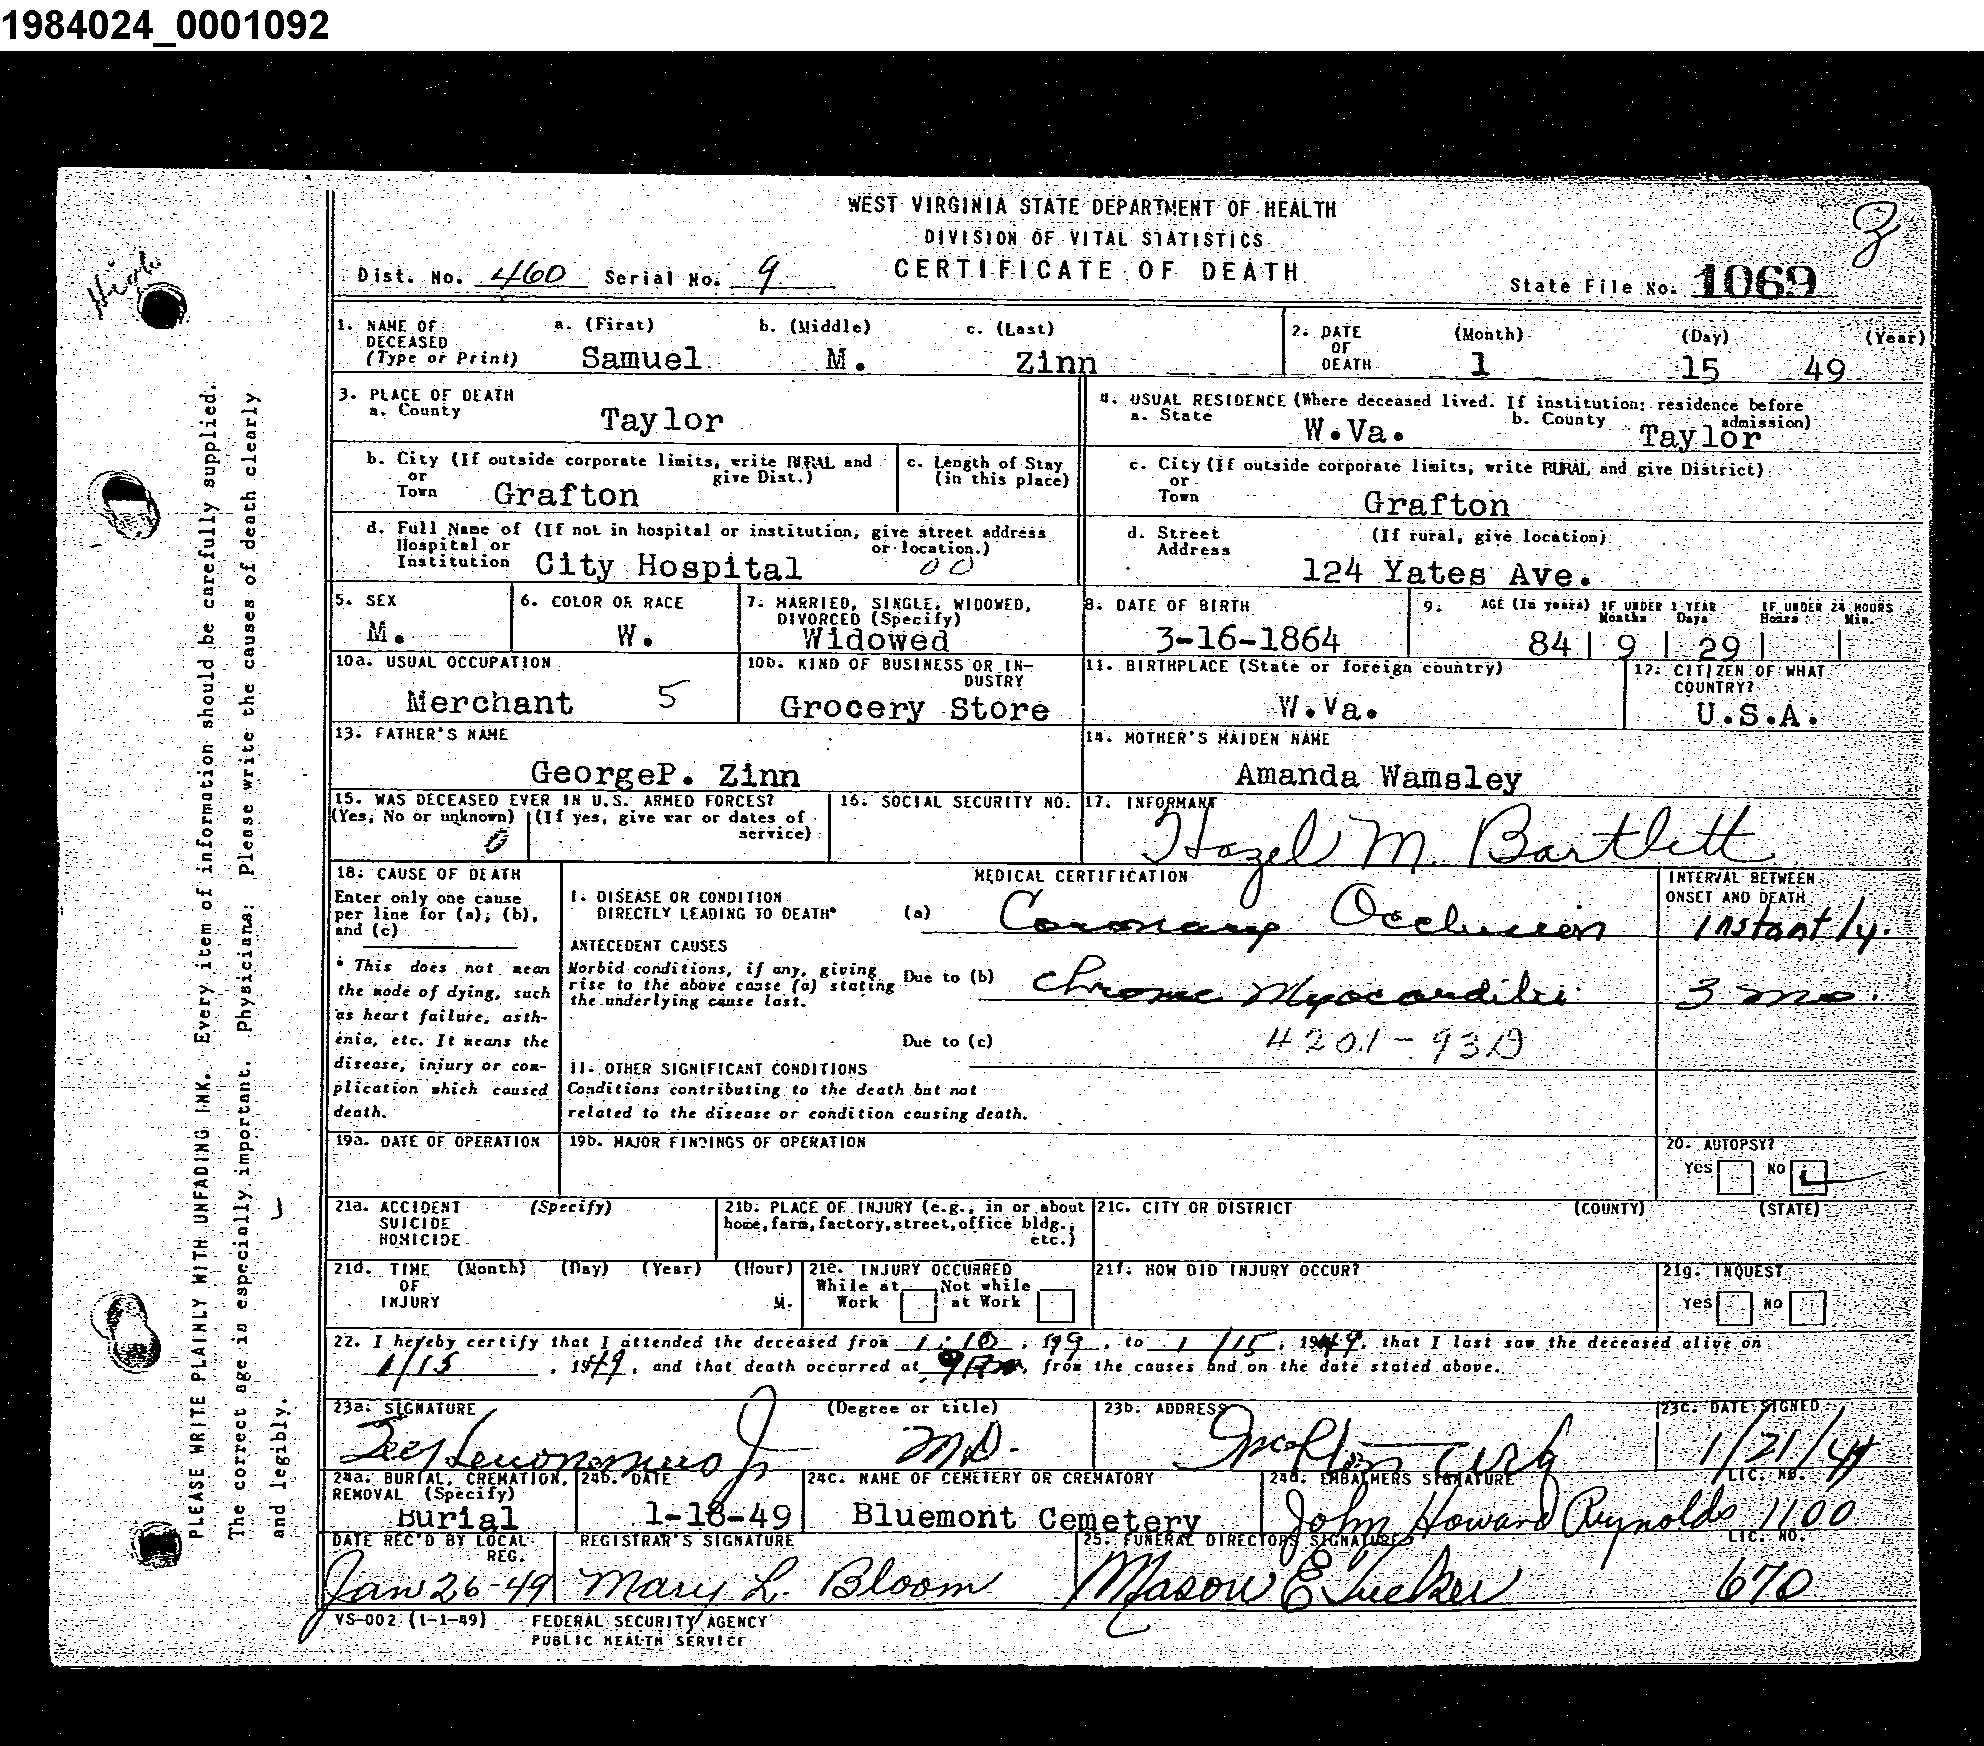 1984024_0001092
WEST VIRGINIA STATE DEPARTMENT OF HEALTH
DIVISION OF VITAL STATISTICS
Dist. No. 460 Serial No. 9 CERTIFICATE OF DEATH State File No. 1069
1. NAME OF DECEASED (Type or Print) a. (First) Samuel b. (Middle) M. c. (Last) Zinn
2. DATE OF DEATH (Month) 1 (Day) 15 (Year) 49
3. PLACE OF DEATH
a. County Taylor
4. USUAL RESIDENCE (Where deceased lived. If institution: residence before admission)
a. State W.Va. b. County Taylor
b. City (If outside corporate limits, write RURAL and give Dist.) or Town Grafton
c. Length of Stay (in this place)
c. City (If outside corporate limits, write RURAL and give District) or Town Grafton
d. Full Name of (If not in hospital or institution, give street address or location.) Hospital or Institution City Hospital 00
d. Street Address (If rural, give location) 124 Yates Ave.
5. SEX M.
6. COLOR OR RACE W.
7. MARRIED, SINGLE, WIDOWED, DIVORCED (Specify) Widowed
8. DATE OF BIRTH 3-16-1864
9. AGE (In years) 84 IF UNDER 1 YEAR Months 9 Days 29 IF UNDER 24 HOURS Hours Min.
10a. USUAL OCCUPATION Merchant 5
10b. KIND OF BUSINESS OR INDUSTRY Grocery Store
11. BIRTHPLACE (State or foreign country) W.Va.
12. CITIZEN OF WHAT COUNTRY? U.S.A.
13. FATHER'S NAME GeorgeP. Zinn
14. MOTHER'S MAIDEN NAME Amanda Wamsley
15. WAS DECEASED EVER IN U.S. ARMED FORCES?
(Yes, No or unknown) 0 (If yes, give war or dates of service)
16. SOCIAL SECURITY NO.
17. INFORMANT Hazel M. Bartlett
18. CAUSE OF DEATH
Enter only one cause per line for (a), (b), and (c)
* This does not mean the mode of dying, such as heart failure, asthenia, etc. It means the disease, injury or complication which caused death.
MEDICAL CERTIFICATION
INTERVAL BETWEEN ONSET AND DEATH
I. DISEASE OR CONDITION DIRECTLY LEADING TO DEATH* (a) Coronary Occlusion instantly.
ANTECEDENT CAUSES
Morbid conditions, if any, giving rise to the above cause (a) stating the underlying cause last.
Due to (b) Chronic Myocarditis 3 mo.
Due to (c) 4201-93D
II. OTHER SIGNIFICANT CONDITIONS
Conditions contributing to the death but not related to the disease or condition causing death.
19a. DATE OF OPERATION
19b. MAJOR FINDINGS OF OPERATION
20. AUTOPSY?
Yes No
21a. ACCIDENT SUICIDE HOMICIDE (Specify)
21b. PLACE OF INJURY (e.g., in or about home, farm, factory, street, office bldg., etc.)
21c. CITY OR DISTRICT (COUNTY) (STATE)
21d. TIME OF INJURY (Month) (Day) (Year) (Hour) M.
21e. INJURY OCCURRED
While at Work Not while at Work
21f. HOW DID INJURY OCCUR?
21g. INQUEST
Yes No
22. I hereby certify that I attended the deceased from 1-10, , to 1/15, 1949, that I last saw the deceased alive on
1/15, 1949, and that death occurred at , from the causes and on the date stated above.
23a. SIGNATURE (Degree or title) Jr MD.
23b. ADDRESS Grafton W Va
23c. DATE SIGNED 1/21/49
24a. BURIAL, CREMATION, REMOVAL (Specify) Burial
24b. DATE 1-18-49
24c. NAME OF CEMETERY OR CREMATORY Bluemont Cemetery
24d. EMBALMERS SIGNATURE John Howard Reynolds LIC. NO. 1100
DATE REC'D BY LOCAL REG. Jan 26-49
REGISTRAR'S SIGNATURE Mary L. Bloom
25. FUNERAL DIRECTORS SIGNATURE Mason E Tucker LIC. NO. 670
VS-002 (1-1-49) FEDERAL SECURITY AGENCY
PUBLIC HEALTH SERVICE
PLEASE WRITE PLAINLY WITH UNFADING INK. Every item of information should be carefully supplied.
The correct age is especially important. Physicians: Please write the causes of death clearly
and legibly.